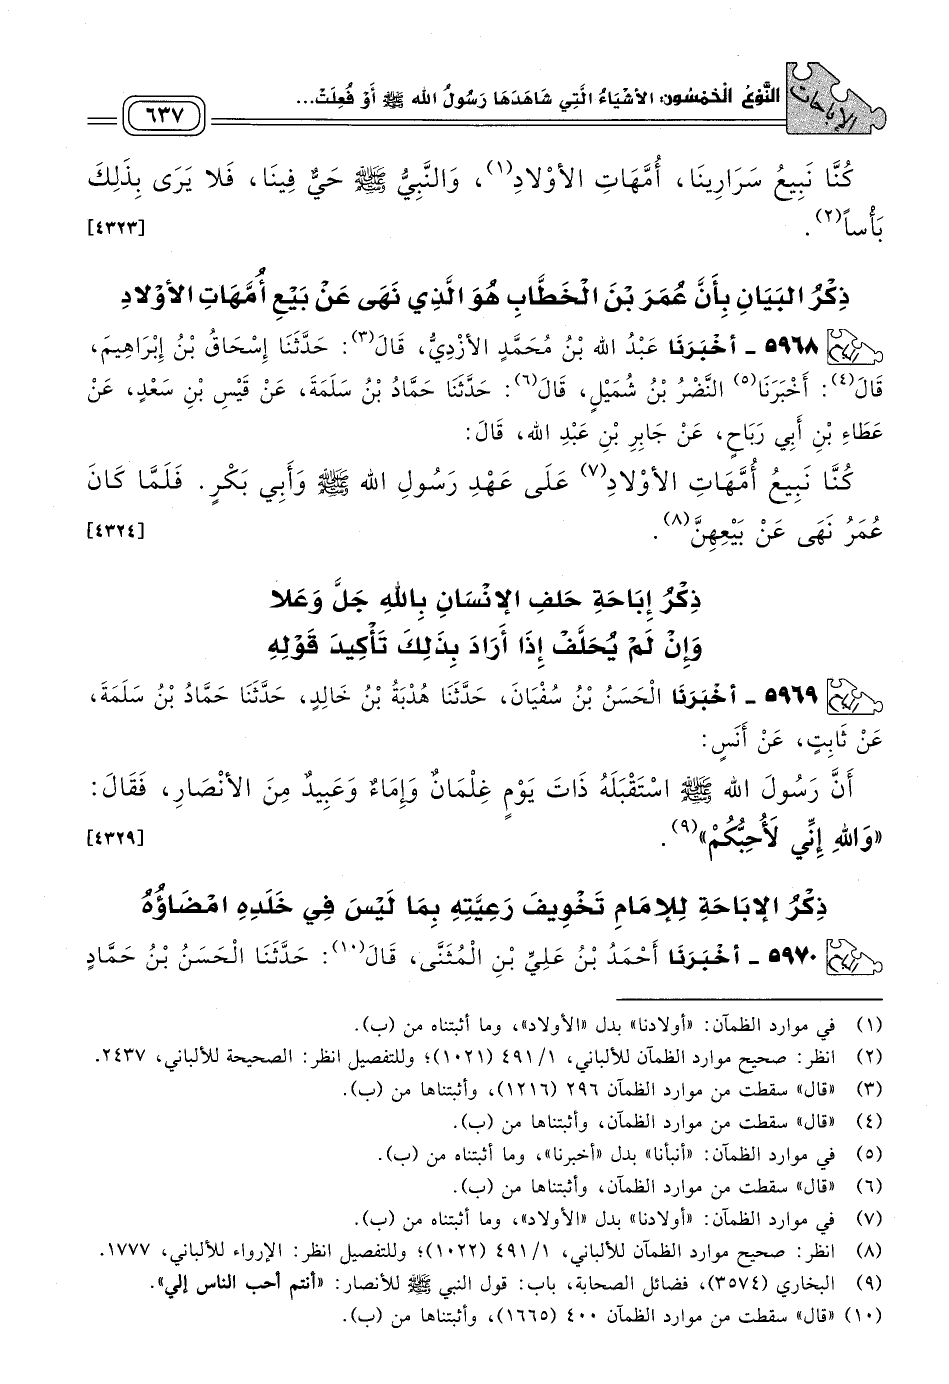 الإباحات
النَّوْعُ الْخَمْسُون: الأشْيَاءُ الَّتِي شَاهَدَهَا رَسُولُ الله ﷺ أَوْ فُعِلَتْ...
٦٣٧
كُنَّا نَبِيعُ سَرَارِينَا، أُمَّهَاتِ الأَوْلادِ(١)، وَالنَّبِيُّ ﷺ حَيٌّ فِينَا، فَلا يَرَى بِذَلِكَ
بَأْساً(٢). [٤٣٢٣]
ذِكْرُ البَيَانِ بِأَنَّ عُمَرَ بْنَ الْخَطَّابِ هُوَ الَّذِي نَهَى عَنْ بَيْعِ أُمَّهَاتِ الأوْلادِ
٥٩٦٨ ـ أخْبَرَنَا عَبْدُ الله بْنُ مُحَمَّدٍ الأزْدِيُّ، قَالَ(٣): حَدَّثَنَا إِسْحَاقُ بْنُ إِبْرَاهِيمَ،
قَالَ(٤): أَخْبَرَنَا(٥) النَّضْرُ بْنُ شُمَيْلٍ، قَالَ(٦): حَدَّثَنَا حَمَّادُ بْنُ سَلَمَةَ، عَنْ قَيْسِ بْنِ سَعْدٍ، عَنْ
عَطَاءِ بْنِ أَبِي رَبَاحٍ، عَنْ جَابِرِ بْنِ عَبْدِ الله، قَالَ:
كُنَّا نَبِيعُ أُمَّهَاتِ الأَوْلادِ(٧) عَلَى عَهْدِ رَسُولِ الله ﷺ وَأَبِي بَكْرٍ. فَلَمَّا كَانَ
عُمَرُ نَهَى عَنْ بَيْعِهِنَّ(٨). [٤٣٢٤]
ذِكْرُ إِبَاحَةِ حَلفِ الإنْسَانِ بِاللهِ جَلَّ وَعَلا
وَإِنْ لَمْ يُحَلَّفْ إِذَا أَرَادَ بِذَلِكَ تَأْكِيدَ قَوْلِهِ
٥٩٦٩ ـ أخْبَرَنَا الْحَسَنُ بْنُ سُفْيَانَ، حَدَّثَنَا هُدْبَةُ بْنُ خَالِدٍ، حَدَّثَنَا حَمَّادُ بْنُ سَلَمَةَ،
عَنْ ثَابِتٍ، عَنْ أَنَسٍ:
أَنَّ رَسُولَ الله ﷺ اسْتَقْبَلَهُ ذَاتَ يَوْمٍ غِلْمَانٌ وَإِمَاءٌ وَعَبِيدٌ مِنَ الأنْصَارِ، فَقَالَ:
«وَاللهِ إِنِّي لَأُحِبُّكُمْ»(٩). [٤٣٢٩]
ذِكْرُ الإبَاحَةِ لِلإمَامِ تَخْوِيفَ رَعِيَّتِهِ بِمَا لَيْسَ فِي خَلَدِهِ امْضَاؤُهُ
٥٩٧٠ ـ أخْبَرَنَا أَحْمَدُ بْنُ عَلِيِّ بْنِ الْمُثَنَّى، قَالَ(١٠): حَدَّثَنَا الْحَسَنُ بْنُ حَمَّادٍ
(١) في موارد الظمآن: «أولادنا» بدل «الأولاد»، وما أثبتناه من (ب).
(٢) انظر: صحيح موارد الظمآن للألباني، ١/ ٤٩١ (١٠٢١)؛ وللتفصيل انظر: الصحيحة للألباني، ٢٤٣٧.
(٣) «قال» سقطت من موارد الظمآن ٢٩٦ (١٢١٦)، وأثبتناها من (ب).
(٤) «قال» سقطت من موارد الظمآن، وأثبتناها من (ب).
(٥) في موارد الظمآن: «أنبأنا» بدل «أخبرنا»، وما أثبتناه من (ب).
(٦) «قال» سقطت من موارد الظمآن، وأثبتناها من (ب).
(٧) في موارد الظمآن: «أولادنا» بدل «الأولاد»، وما أثبتناه من (ب).
(٨) انظر: صحيح موارد الظمآن للألباني، ١/ ٤٩١ (١٠٢٢)؛ وللتفصيل انظر: الإرواء للألباني، ١٧٧٧.
(٩) البخاري (٣٥٧٤)، فضائل الصحابة، باب: قول النبي ﷺ للأنصار: «أنتم أحب الناس إلي».
(١٠) «قال» سقطت من موارد الظمآن ٤٠٠ (١٦٦٥)، وأثبتناها من (ب).